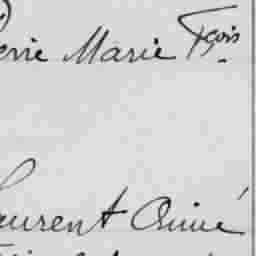 erre Marie Fçois
aurent Aimé